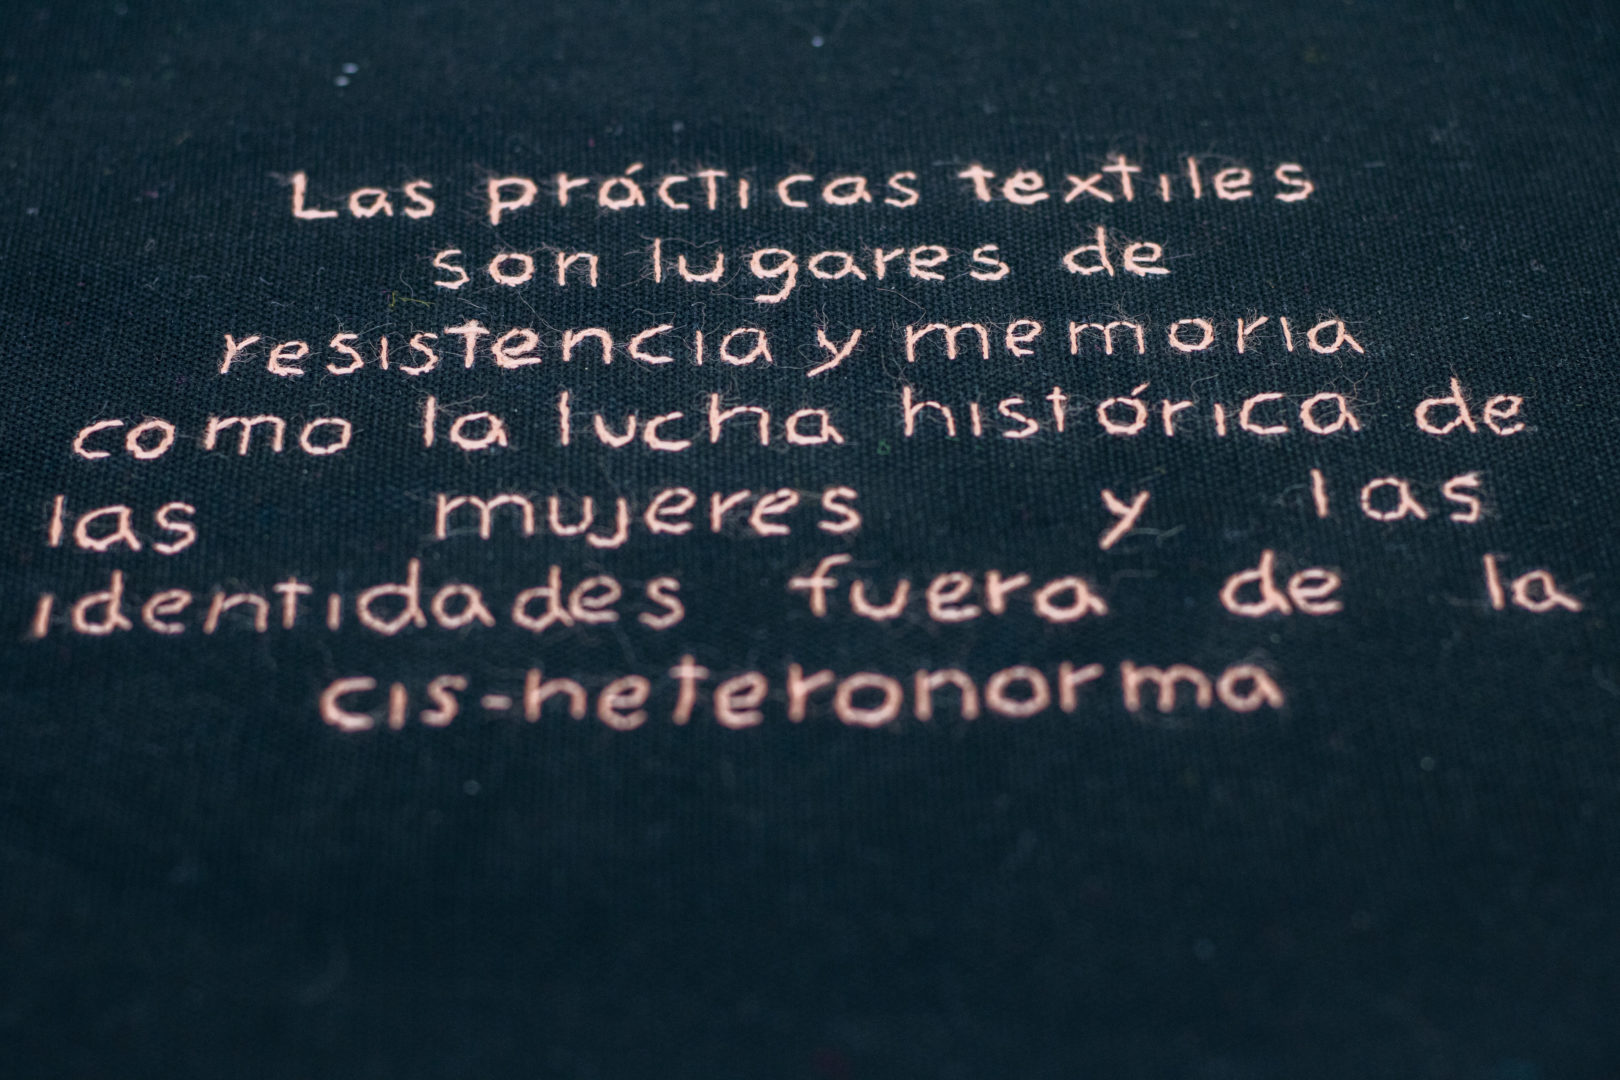 Las prácticas textiles
son lugares de
resistencia y memoria
como la lucha histórica de
las mujeres y las
identidades fuera de la
cis-heteronorma